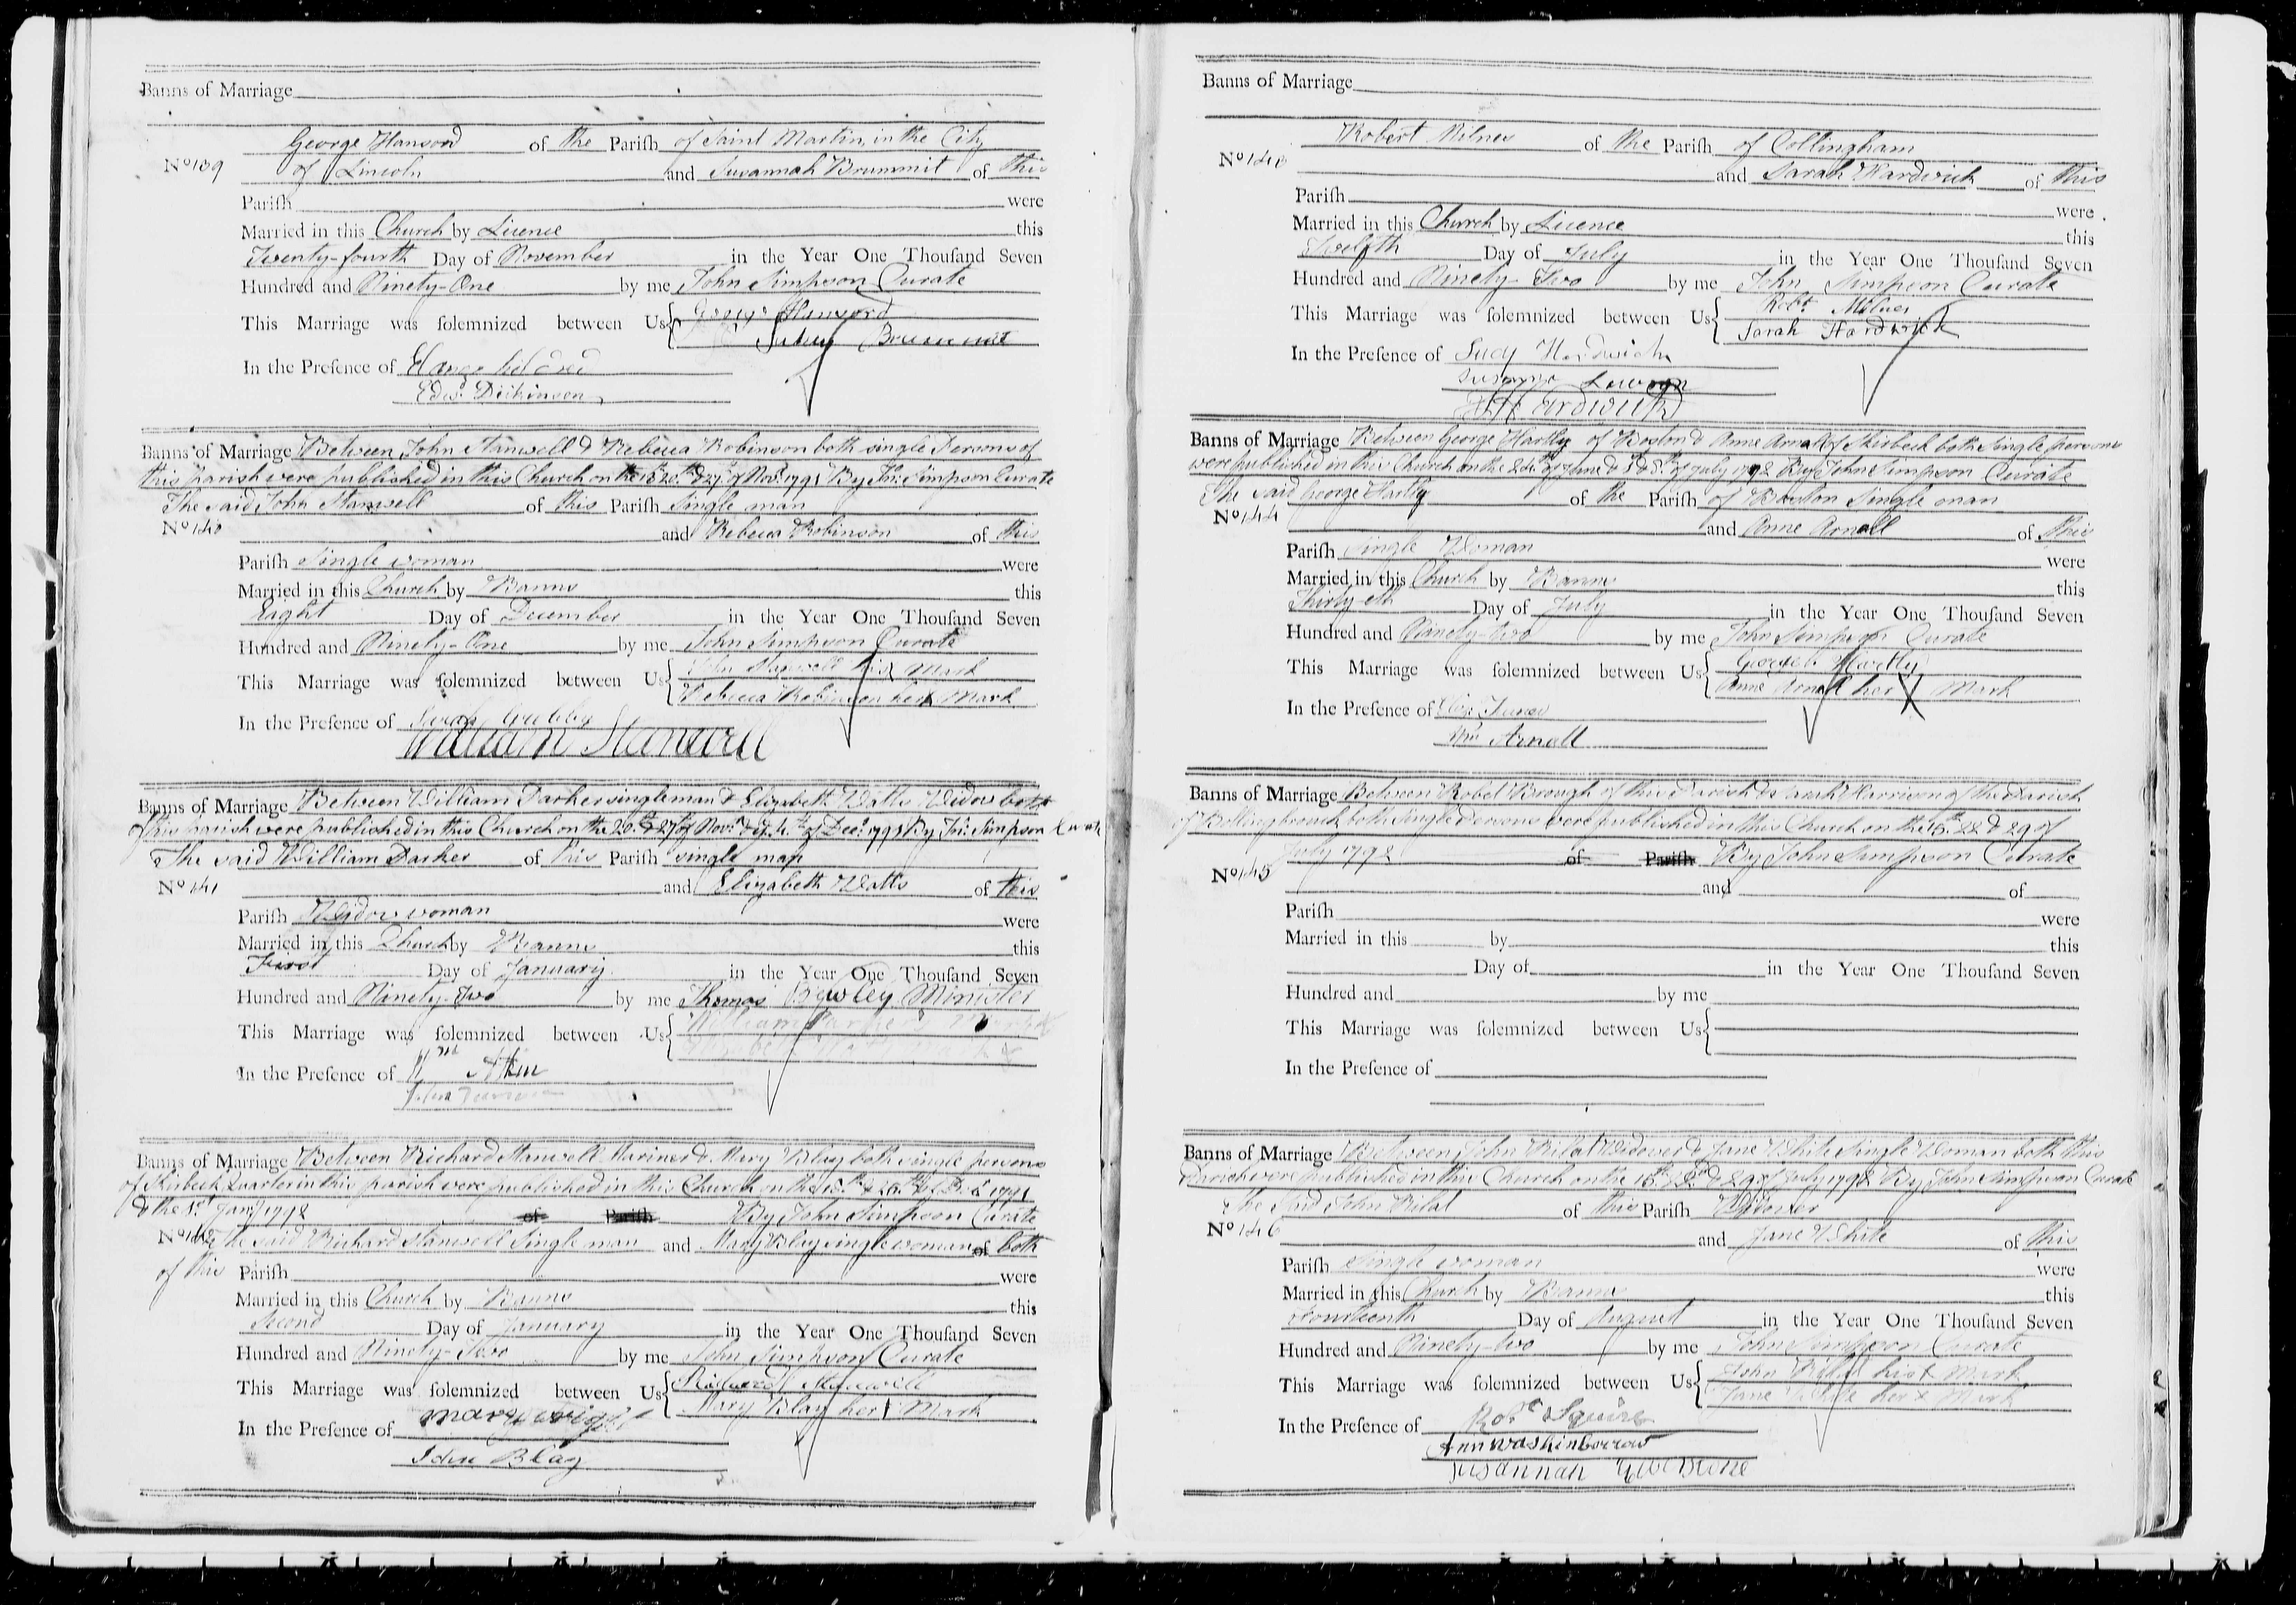 Banns of Marriage
George Hansord of the Parish of Saint Martin, in the City
No 139 of Lincoln and Susannah Brummit of this
Parish were
Married in this Church by Licence this
Twenty-fourth Day of November in the Year One Thousand Seven
Hundred and Ninety-One by me John Simpson Curate
This Marriage was solemnized between Us George Hansord
Brummit
In the Presence of
Edwd. Dickinson
Banns of Marriage Between John Stanwell & Rebecca Robinson both single Persons of
this parish were published in this Church on the 20th & 27th of Novr. 1791 By Jno. Simpson Curate
The said John Stanwell of this Parish Single man
No 140 and Rebecca Robinson of this
Parish Single woman were
Married in this Church by Banns this
Eaght Day of December in the Year One Thousand Seven
Hundred and Ninety-One by me John Simpson Curate
This Marriage was solemnized between Us John Stanwell his X Mark
Rebecca Robinson her X Mark
In the Presence of
William Stanwell
Banns of Marriage Between William Parker singleman & Elizabeth Watts Widow both
of this parish were published in this Church on the 20th & 27th of Novr. & 4th of Decr. 1791 By Jno. Simpson Curate
The said William Parker of this Parish single man
No 141 and Elizabeth Watts of this
Parish Widow woman were
Married in this Church by Banns this
First Day of January in the Year One Thousand Seven
Hundred and Ninety-two by me Thomas Bewley Minister
This Marriage was solemnized between Us William Parker
In the Presence of Wm Atkin
John
Banns of Marriage Between Richard Stanwell Mariner & Mary Blay both single persons
of Skirbeck Quarter in this parish were published in this Church on the 18th & 26th of Decr. 1791
& the 1st Jany. 1792 of Parish By John Simpson Curate
No 142 The said Richard Stanwell Single man and Mary Blay single woman of both
of this Parish were
Married in this Church by Banns this
Second Day of January in the Year One Thousand Seven
Hundred and Ninety-Two by me John Simpson Curate
This Marriage was solemnized between Us Richard Stanwell
Mary Blay her X Mark
In the Presence of Mary
John Blay
Banns of Marriage
Robert Milnes of the Parish of Collingham
No 143 and Sarah Hardwick of this
Parish were
Married in this Church by Licence this
Twelfth Day of July in the Year One Thousand Seven
Hundred and Ninety-Two by me John Simpson Curate
This Marriage was solemnized between Us Robt. Milnes
Sarah Hardwick
In the Presence of Lucy Hardwick
Hardwick
Banns of Marriage Between George Hartly of Boston & Anne Arnall of Skirbeck both Single persons
were published in this Church on the 24th of June & 1st & 8th of July 1792 By John Simpson Curate
The said George Hartly of the Parish of Boston Single man
No 144 and Anne Arnall of this
Parish Single Woman were
Married in this Church by Banns this
Thirty-eth Day of July in the Year One Thousand Seven
Hundred and Ninety-two by me John Simpson Curate
This Marriage was solemnized between Us George Hartly
Anne Arnall her X Mark
In the Presence of
Wm Arnall
Banns of Marriage Between Robet Brough of this Parish & Sarah Harrison of the Parish
of Bollingbrouck both Single Persons were published in this Church on the 15th 22 & 29 of
July 1792 of Parish By John Simpson Curate
No 145 and of
Parish were
Married in this by this
Day of in the Year One Thousand Seven
Hundred and by me
This Marriage was solemnized between Us
In the Presence of
Banns of Marriage Between John Widower & Jane White Single Woman both this
Parish were published in this Church on the 15th 22nd & 29 of July 1792 By John Simpson Curate
The Said John of this Parish Widower
No 146 and Jane White of this
Parish Single woman were
Married in this Church by Banns this
Fourteenth Day of August in the Year One Thousand Seven
Hundred and Ninety-two by me John Simpson Curate
This Marriage was solemnized between Us John his X Mark
Jane White her X Mark
In the Presence of Robt Squire
Ann Washinborrow
Susannah